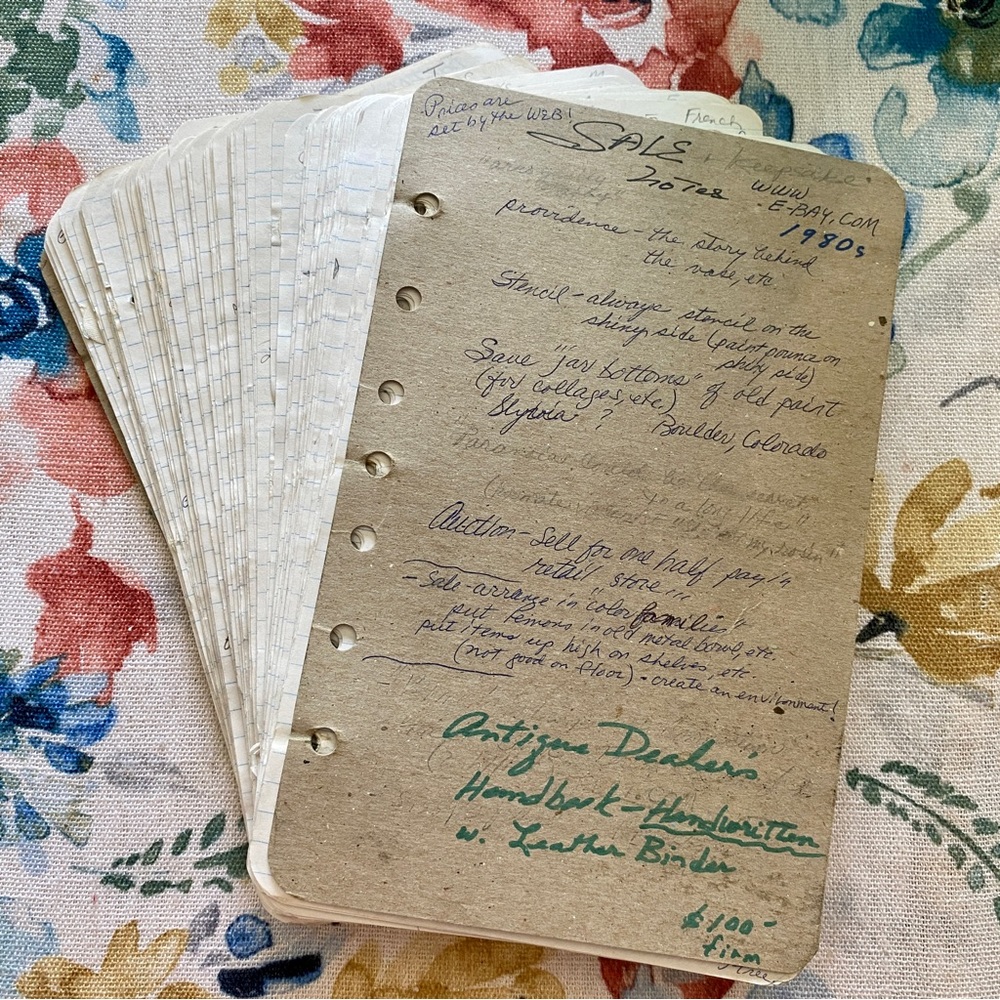 T
M
French
Prices are
set by the WEB!
SALE, keepsake.
Notes
WWW
.E-BAY.COM
1980s
providence - the story behind
the vase, etc.
Stencil - always stencil on the
shiny side (paint pounce on
shiny side)
Save "jar bottoms" of old paint
(for collages, etc.)
? Boulder, Colorado
to a
Auction - Sell for one half pay in
retail store
- Sale - arrange in "color families"
put lemons in old metal bowl, etc.
put items up high on shelves, etc.
(not good on floor) - create an environment!
Antique Dealer's
Handbook - Handwritten
w. Leather Binder
$100-
firm